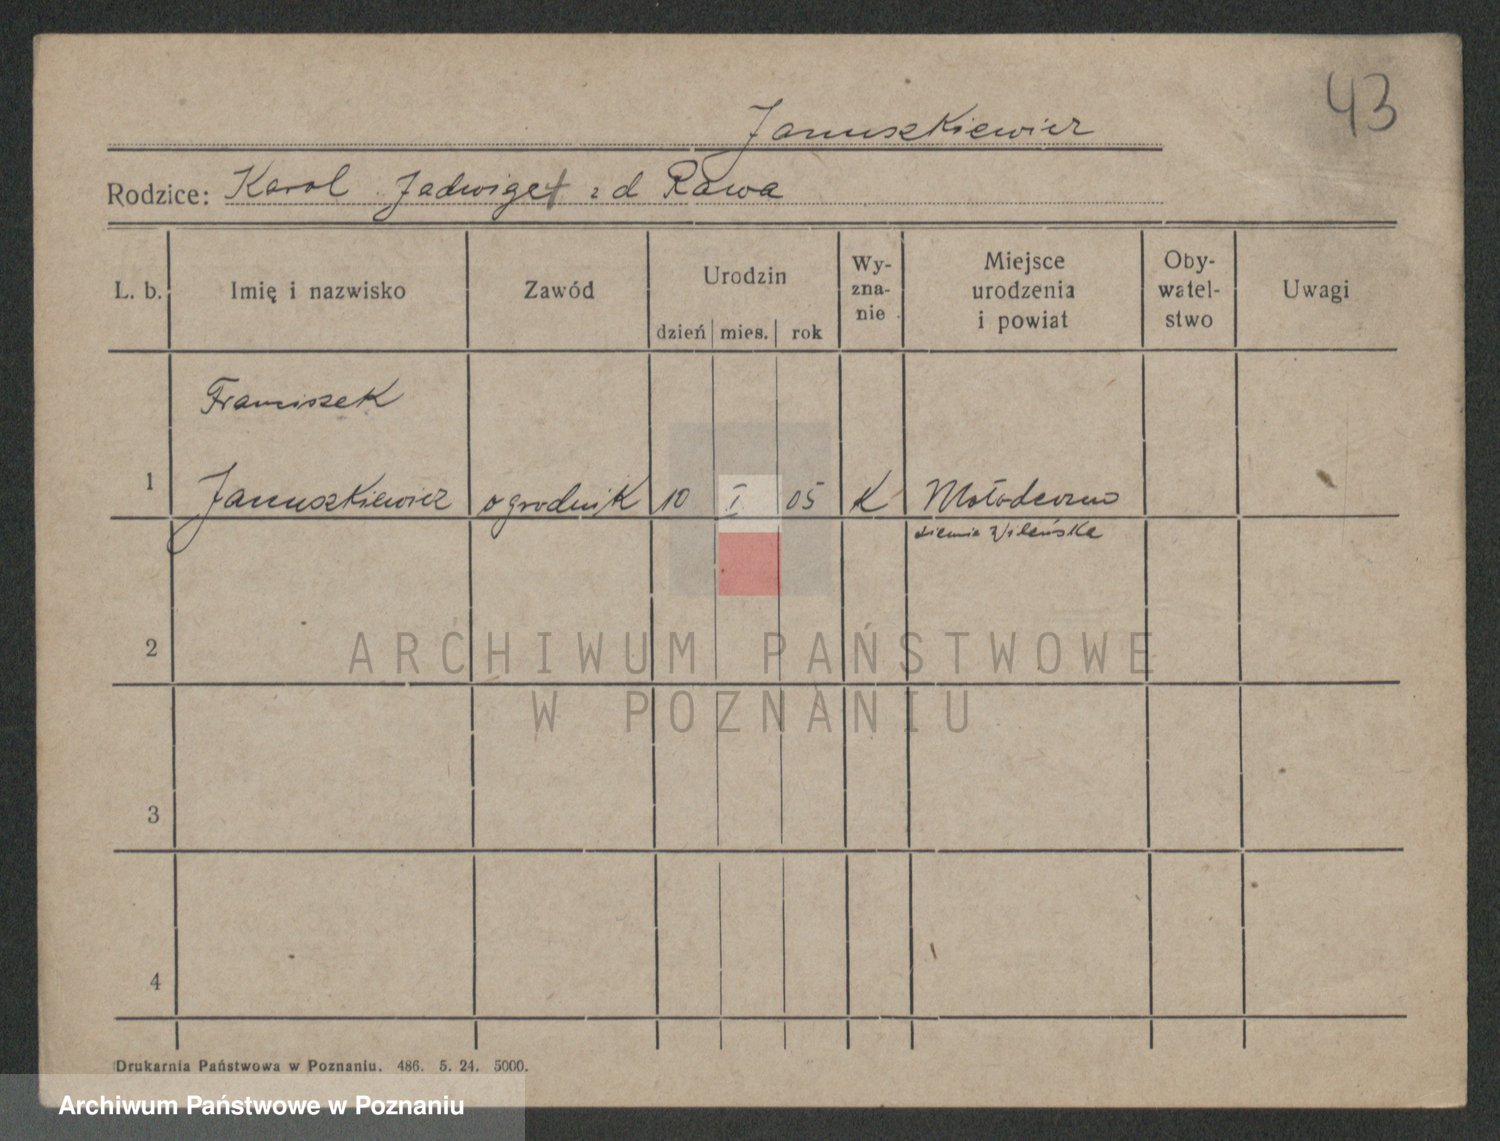 43
Januszkiewicz
Rodzice: Karol Jadwiga z d Rawa
L. b. Imię i nazwisko Zawód Urodzin dzień mies. rok Wy-zna-nie Miejsce urodzenia i powiat Oby-watel-stwo Uwagi
Franciszek
1 Januszkiewicz ogrodnik 10 I 05 K Mołodeczno
ziemia Wileńska
2
ARCHIWUM PAŃSTWOWE
W POZNANIU
3
4
Drukarnia Państwowa w Poznaniu. 486. 5. 24. 5000.
Archiwum Państwowe w Poznaniu